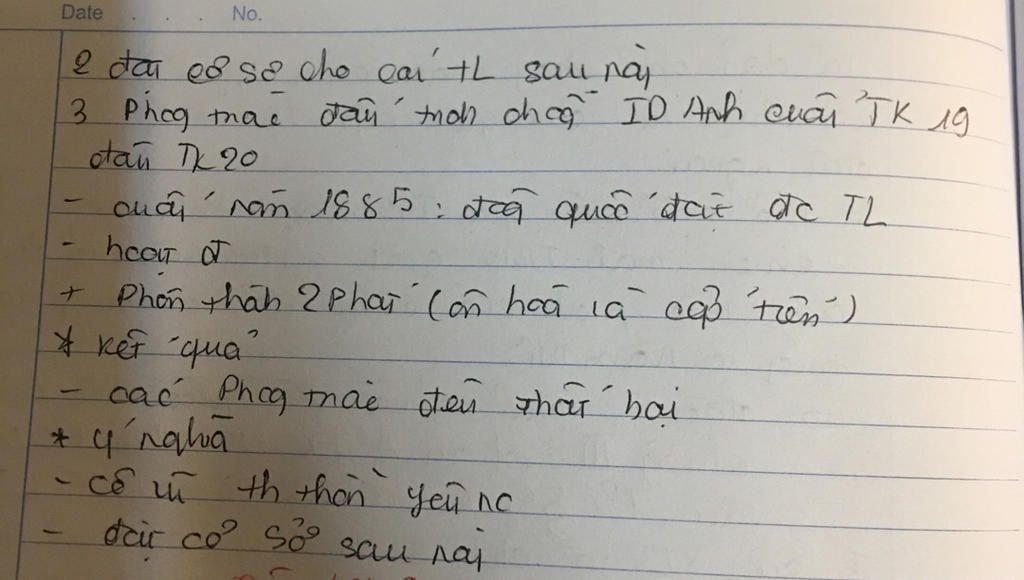 Date . . . No.
2 đặt cơ sở cho cái TL sau này
3 Phog trào đấu trah chống TD Anh cuối TK 19
đầu TK 20
- cuối năm 1885: đảg quốc đại đc TL
- hoạt đ
+ Phân thàh 2 phái (ôn hoà và cấp tiến)
* kết quả
- các Phog trào đều thất bại
* ý nghĩa
- cổ vũ th thần yêu nc
- đặt cơ sở sau này